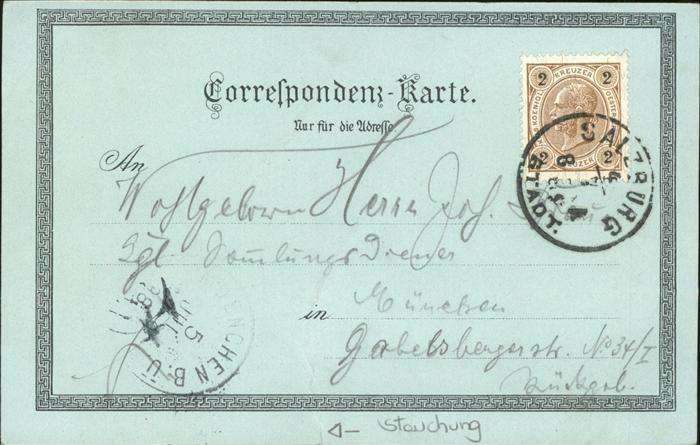 Correspondenz-Karte.
Nur für die Adresse
An
Wohlgeborn Herrn Jos.
Kgl. Sammlungs Diener
in München
Gabelsbergerstr. No 34/I
Rückgeb.
2 KREUZER 2
2 KREUZER 2
SALZBURG STADT
MÜNCHEN B.U.
JUL 5
98
Stauchung